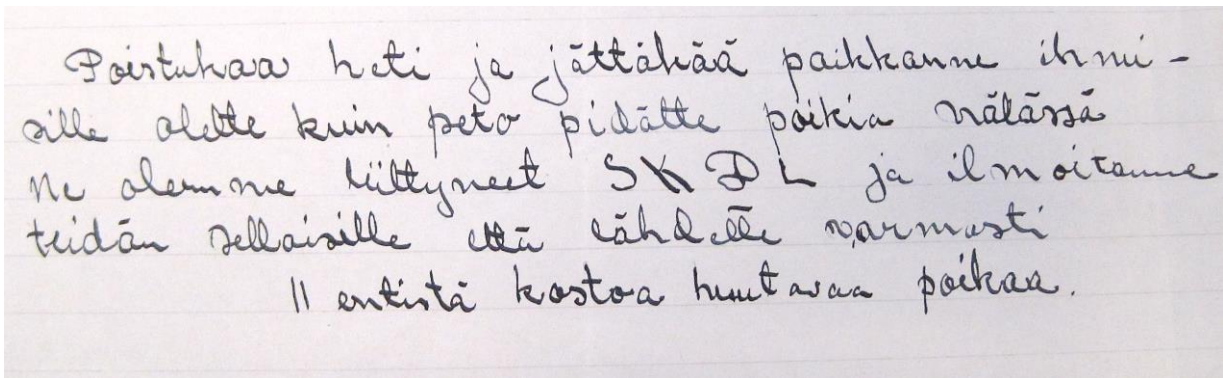 Poistukaa heti ja jättäkää paikkanne ihmi-
sille olette kuin peto pidätte poikia nälässä
me olemme liittyneet SKDL ja ilmoitamme
teidän sellaisille että lähdette varmasti
11 entistä kostoa huutavaa poikaa.